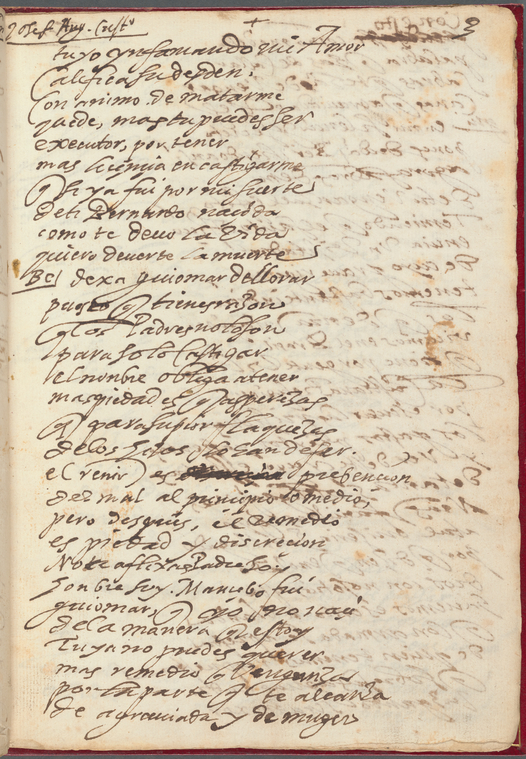 3
tuyo ynfamando mi Amor
Califica su desden.
Con animo de matarme
quede, mas tu puedes ser
executor, por tener
mas licencia en castigarme
q si ya fui por mi suerte
de ti Bernardo nacida
como te devo la Vida
quiero deverte la muerte
Be dexa guiomar de llorar
puesto q tienes razon
q los Padres no lo son
para solo Castigar
el nonbre obliga a tener
mas piedad es q asperezas
q para sufrir flaquezas
de los hijos lo han de ser.
el renir es prebencion
del mal al principio
pero despues, el Remedio
es piedad y discrecion
No te aflixas Padre soy
honbre soy. Mancebo fui
guiomar, q yo
de la manera q estoy
Tu ya no puedes querer
mas remedio q venganza
por la parte q te alcanza
de agraviada y de muger